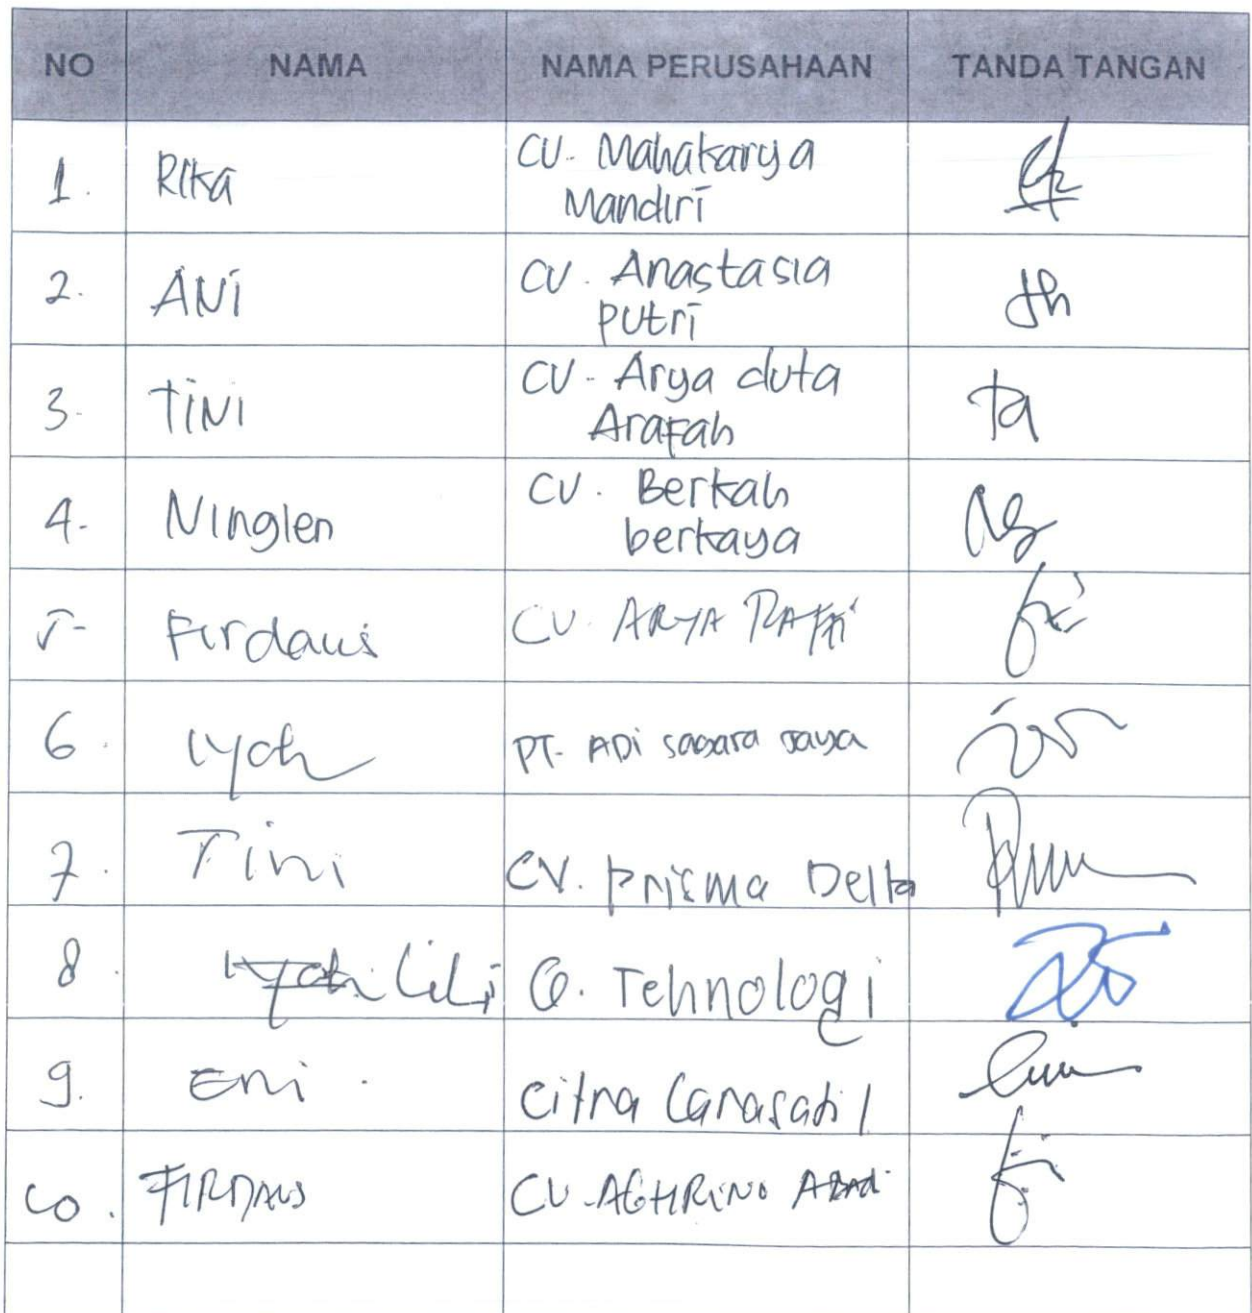 NO NAMA NAMA PERUSAHAAN TANDA TANGAN
1. Rika CV. Mahakarya
Mandiri
2. ANi CV. Anastasia
Putri
3. TiNI CV. Arya duta
Arafah
4. Ninglen CV. Berkah
berkaya
5 Firdaus CV. ARYA RAFFI
6. Iyoh PT. ADi sagara jaya
7. Tini CV. Prisma Delta
8. Iyoh Lili Tehnologi
9. Eni. Citra
10. FIRDAUS CV. AGHRINO